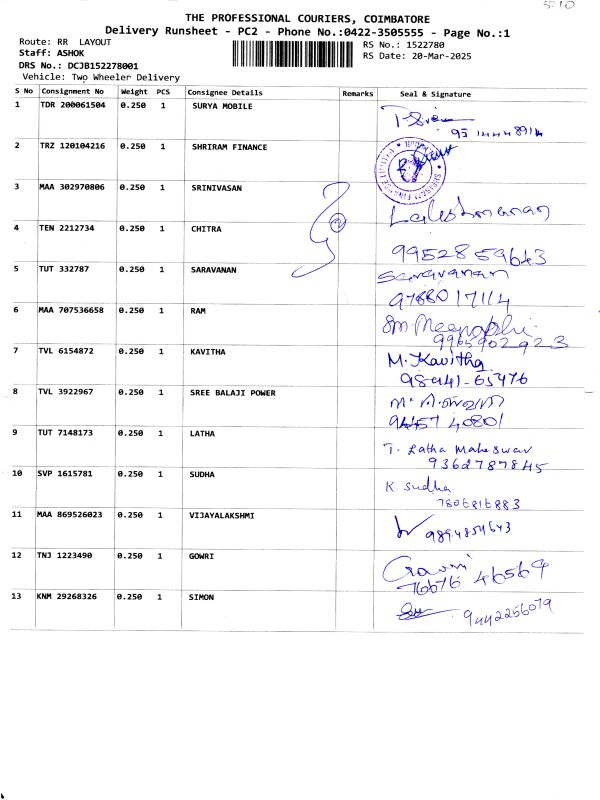 5710
THE PROFESSIONAL COURIERS, COIMBATORE
Delivery Runsheet - PC2 - Phone No.:0422-3505555 - Page No.:1
Route: RR LAYOUT
Staff: ASHOK
DRS No.: DCJB152278001
Vehicle: Two Wheeler Delivery
RS No.: 1522780
RS Date: 20-Mar-2025
S No Consignment No Weight PCS Consignee Details Remarks Seal & Signature
1 TDR 200061504 0.250 1 SURYA MOBILE
2 TRZ 120104216 0.250 1 SHRIRAM FINANCE
3 MAA 302970806 0.250 1 SRINIVASAN
4 TEN 2212734 0.250 1 CHITRA
9952859643
5 TUT 332787 0.250 1 SARAVANAN Saravanan
9788017114
6 MAA 707536658 0.250 1 RAM
9965902923
7 TVL 6154872 0.250 1 KAVITHA M. Kavitha
98941-65476
8 TVL 3922967 0.250 1 SREE BALAJI POWER
94457 40801
9 TUT 7148173 0.250 1 LATHA T. Latha Maheswar
9362787845
10 SVP 1615781 0.250 1 SUDHA K. Sudha
7806816883
11 MAA 869526023 0.250 1 VIJAYALAKSHMI
9894854643
12 TNJ 1223490 0.250 1 GOWRI Gowri
76676 46569
13 KNM 29268326 0.250 1 SIMON
9442256079